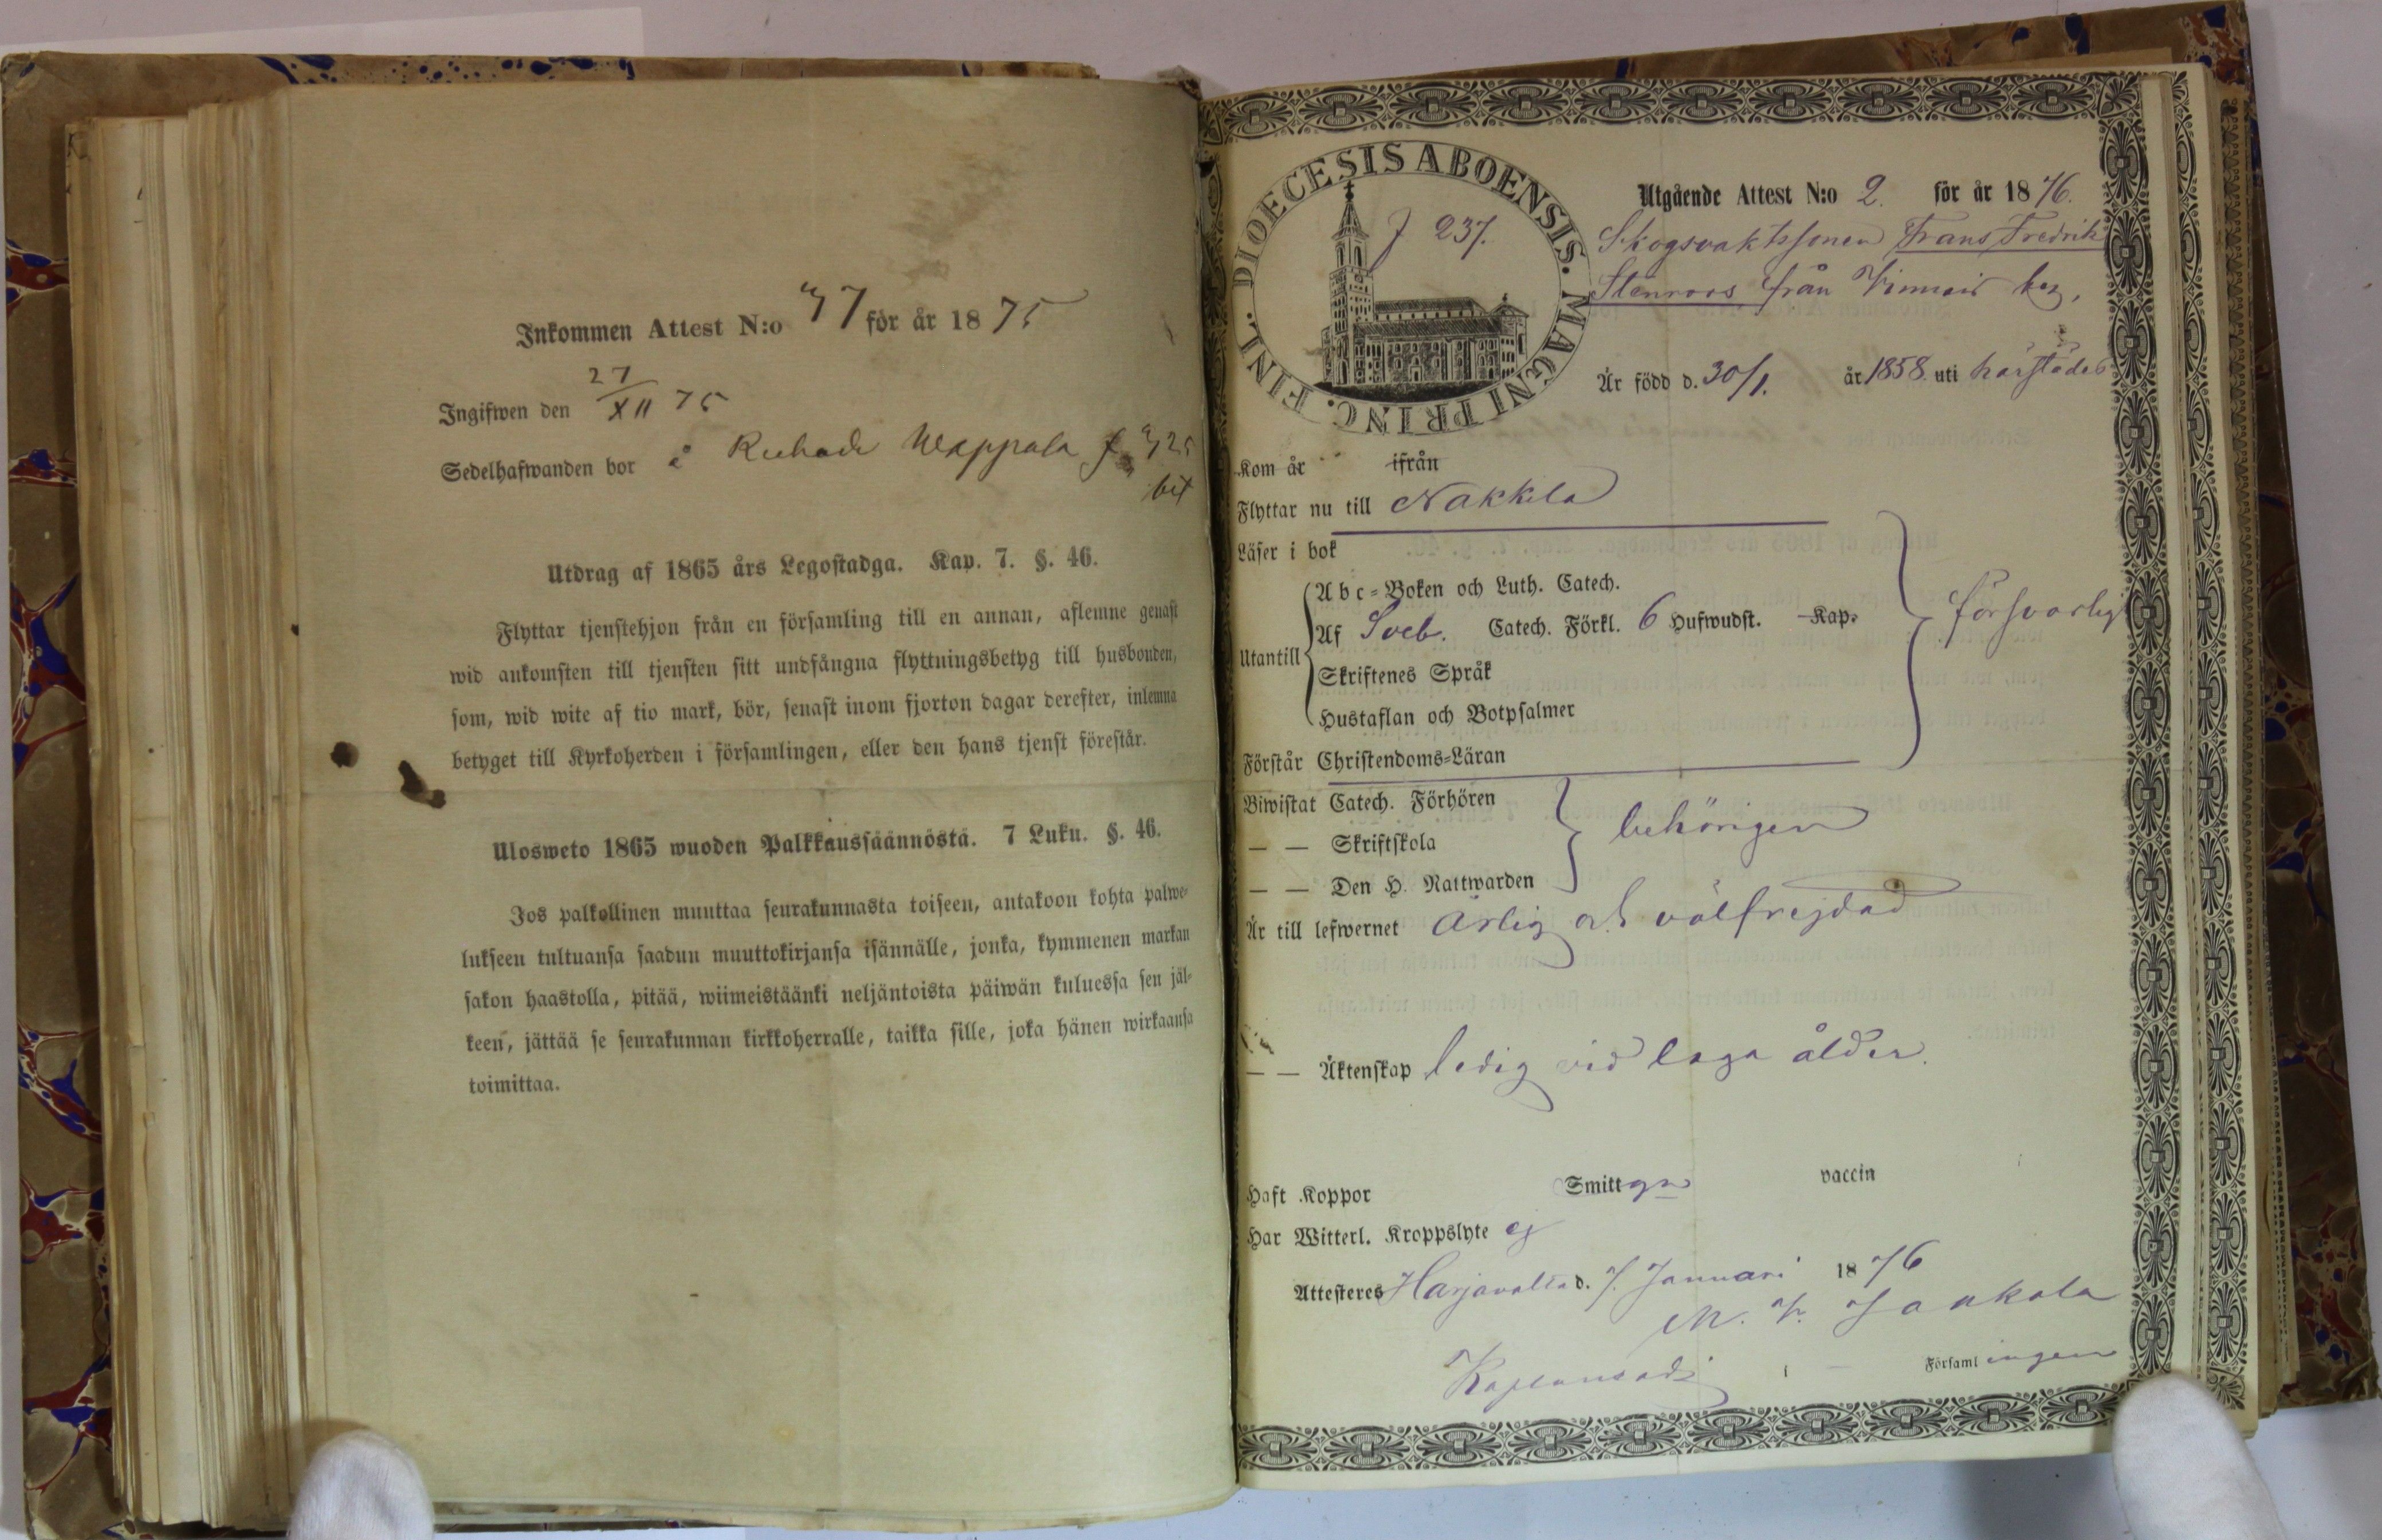 Inkommen Attest N:o 37 för år 1875
Ingifwen den 27/XII 75
Sedelhafwanden bor å
Utdrag af 1865 års Legostadga. Kap. 7. §. 46.
Flyttar tjenstehjon från en församling till en annan, aflemne genast
wid ankomsten till tjensten sitt undfångna flyttningsbetyg till husbonden,
som, wid wite af tio mark, bör, senast inom fjorton dagar derefter, inlemna
betyget till Kyrkoherden i församlingen, eller den hans tjenst förestår.
Ulosweto 1865 wuoden Palkkaussäännöstä. 7 Luku. §. 46.
Jos palkollinen muuttaa seurakunnasta toiseen, antakoon kohta palwe-
lukseen tultuansa saadun muuttokirjansa isännälle, jonka, kymmenen markan
sakon haastolla, pitää, wiimeistäänki neljäntoista päiwän kuluessa sen jäl-
keen, jättää se seurakunnan kirkkoherralle, taikka sille, joka hänen wirkaansa
toimittaa.
DIOECESIS ABOENSIS. MAGNI PRINC. FINL.
237.
Utgående Attest N:o 2. för år 1876.
Skogsvaktssonen Frans Fredrik
Stenroos från
Är född d. 30/1. år 1858. uti härstädes
Kom år ifrån
Flyttar nu till Nakkila
Läser i bok
Utantill
Abc-Boken och Luth. Catech.
Af Sveb. Catech. Förkl. 6 Hufwudst. Kap.
försvarligt
Skriftenes Språk
Hustaflan och Botpsalmer
Förstår Christendoms-Läran
Biwistat Catech. Förhören
— — Skriftskola
behörigen
— — Den H. Nattwarden
Är till lefwernet ärlig och välfrejdad
— — Äktenskap ledig vid laga ålder.
Haft Koppor Smitt vaccin
Har Witterl. Kroppslyte ej
Attesteres Harjavalta d. 7. Januari 1876
Jaakola
Kaplansadj i Församlingen